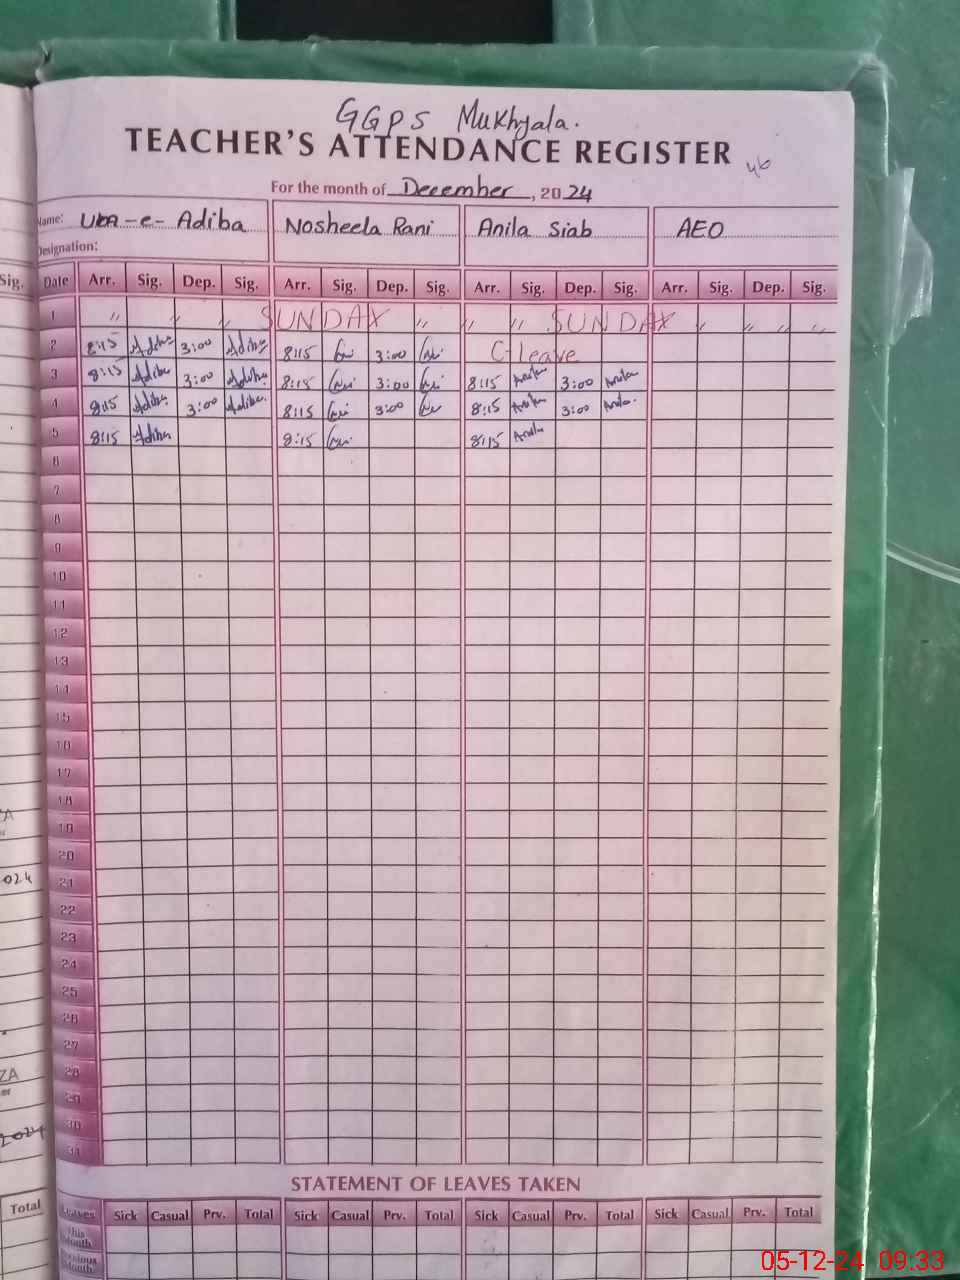 GGPS Mukhyala.
TEACHER'S ATTENDANCE REGISTER
46
For the month of December, 2024
Name: -e- Adiba Nosheela Rani Anila Siab AEO
Designation:
Sig. Date Arr. Sig. Dep. Sig. Arr. Sig. Dep. Sig. Arr. Sig. Dep. Sig. Arr. Sig. Dep. Sig.
1 " " " SUNDAY " " " SUNDAY " " " "
2 8:15 Adiba 3:00 Adiba 8:15 3:00 C-leave
3 8:15 Adiba 3:00 Adiba 8:15 3:00 8:15 Anila 3:00 Anila
4 8:15 Adiba 3:00 Adiba 8:15 3:00 8:15 Anila 3:00 Anila
5 8:15 Adiba 8:15 8:15 Anila
6
7
8
9
10
11
12
13
14
15
16
17
18
19
20
21
22
23
24
25
26
27
28
29
30
31
024
ZA
2024
STATEMENT OF LEAVES TAKEN
Total Leaves Sick Casual Prv. Total Sick Casual Prv. Total Sick Casual Prv. Total Sick Casual Prv. Total
This Month
Previous Month
05-12-24 09:33